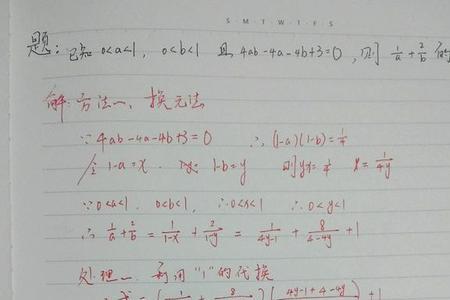 S M T W T F S
题：已知 0<a<1, 0<b<1 且 4ab-4a-4b+3=0, 则 1/a + 2/b 的
解：方法一、换元法
∵ 4ab-4a-4b+3=0 ∴ (1-a)(1-b)=1/4
令 1-a=x. 1-b=y 则 yx=1/4 x=1/4y
∵ 0<a<1, 0<b<1, ∴ 0<x<1 ∴ 0<y<1
∴ 1/a + 2/b = 1/1-x + 2/1-y = 1/4y-1 + 8/4-4y + 1
处理一 利用"1"的代换